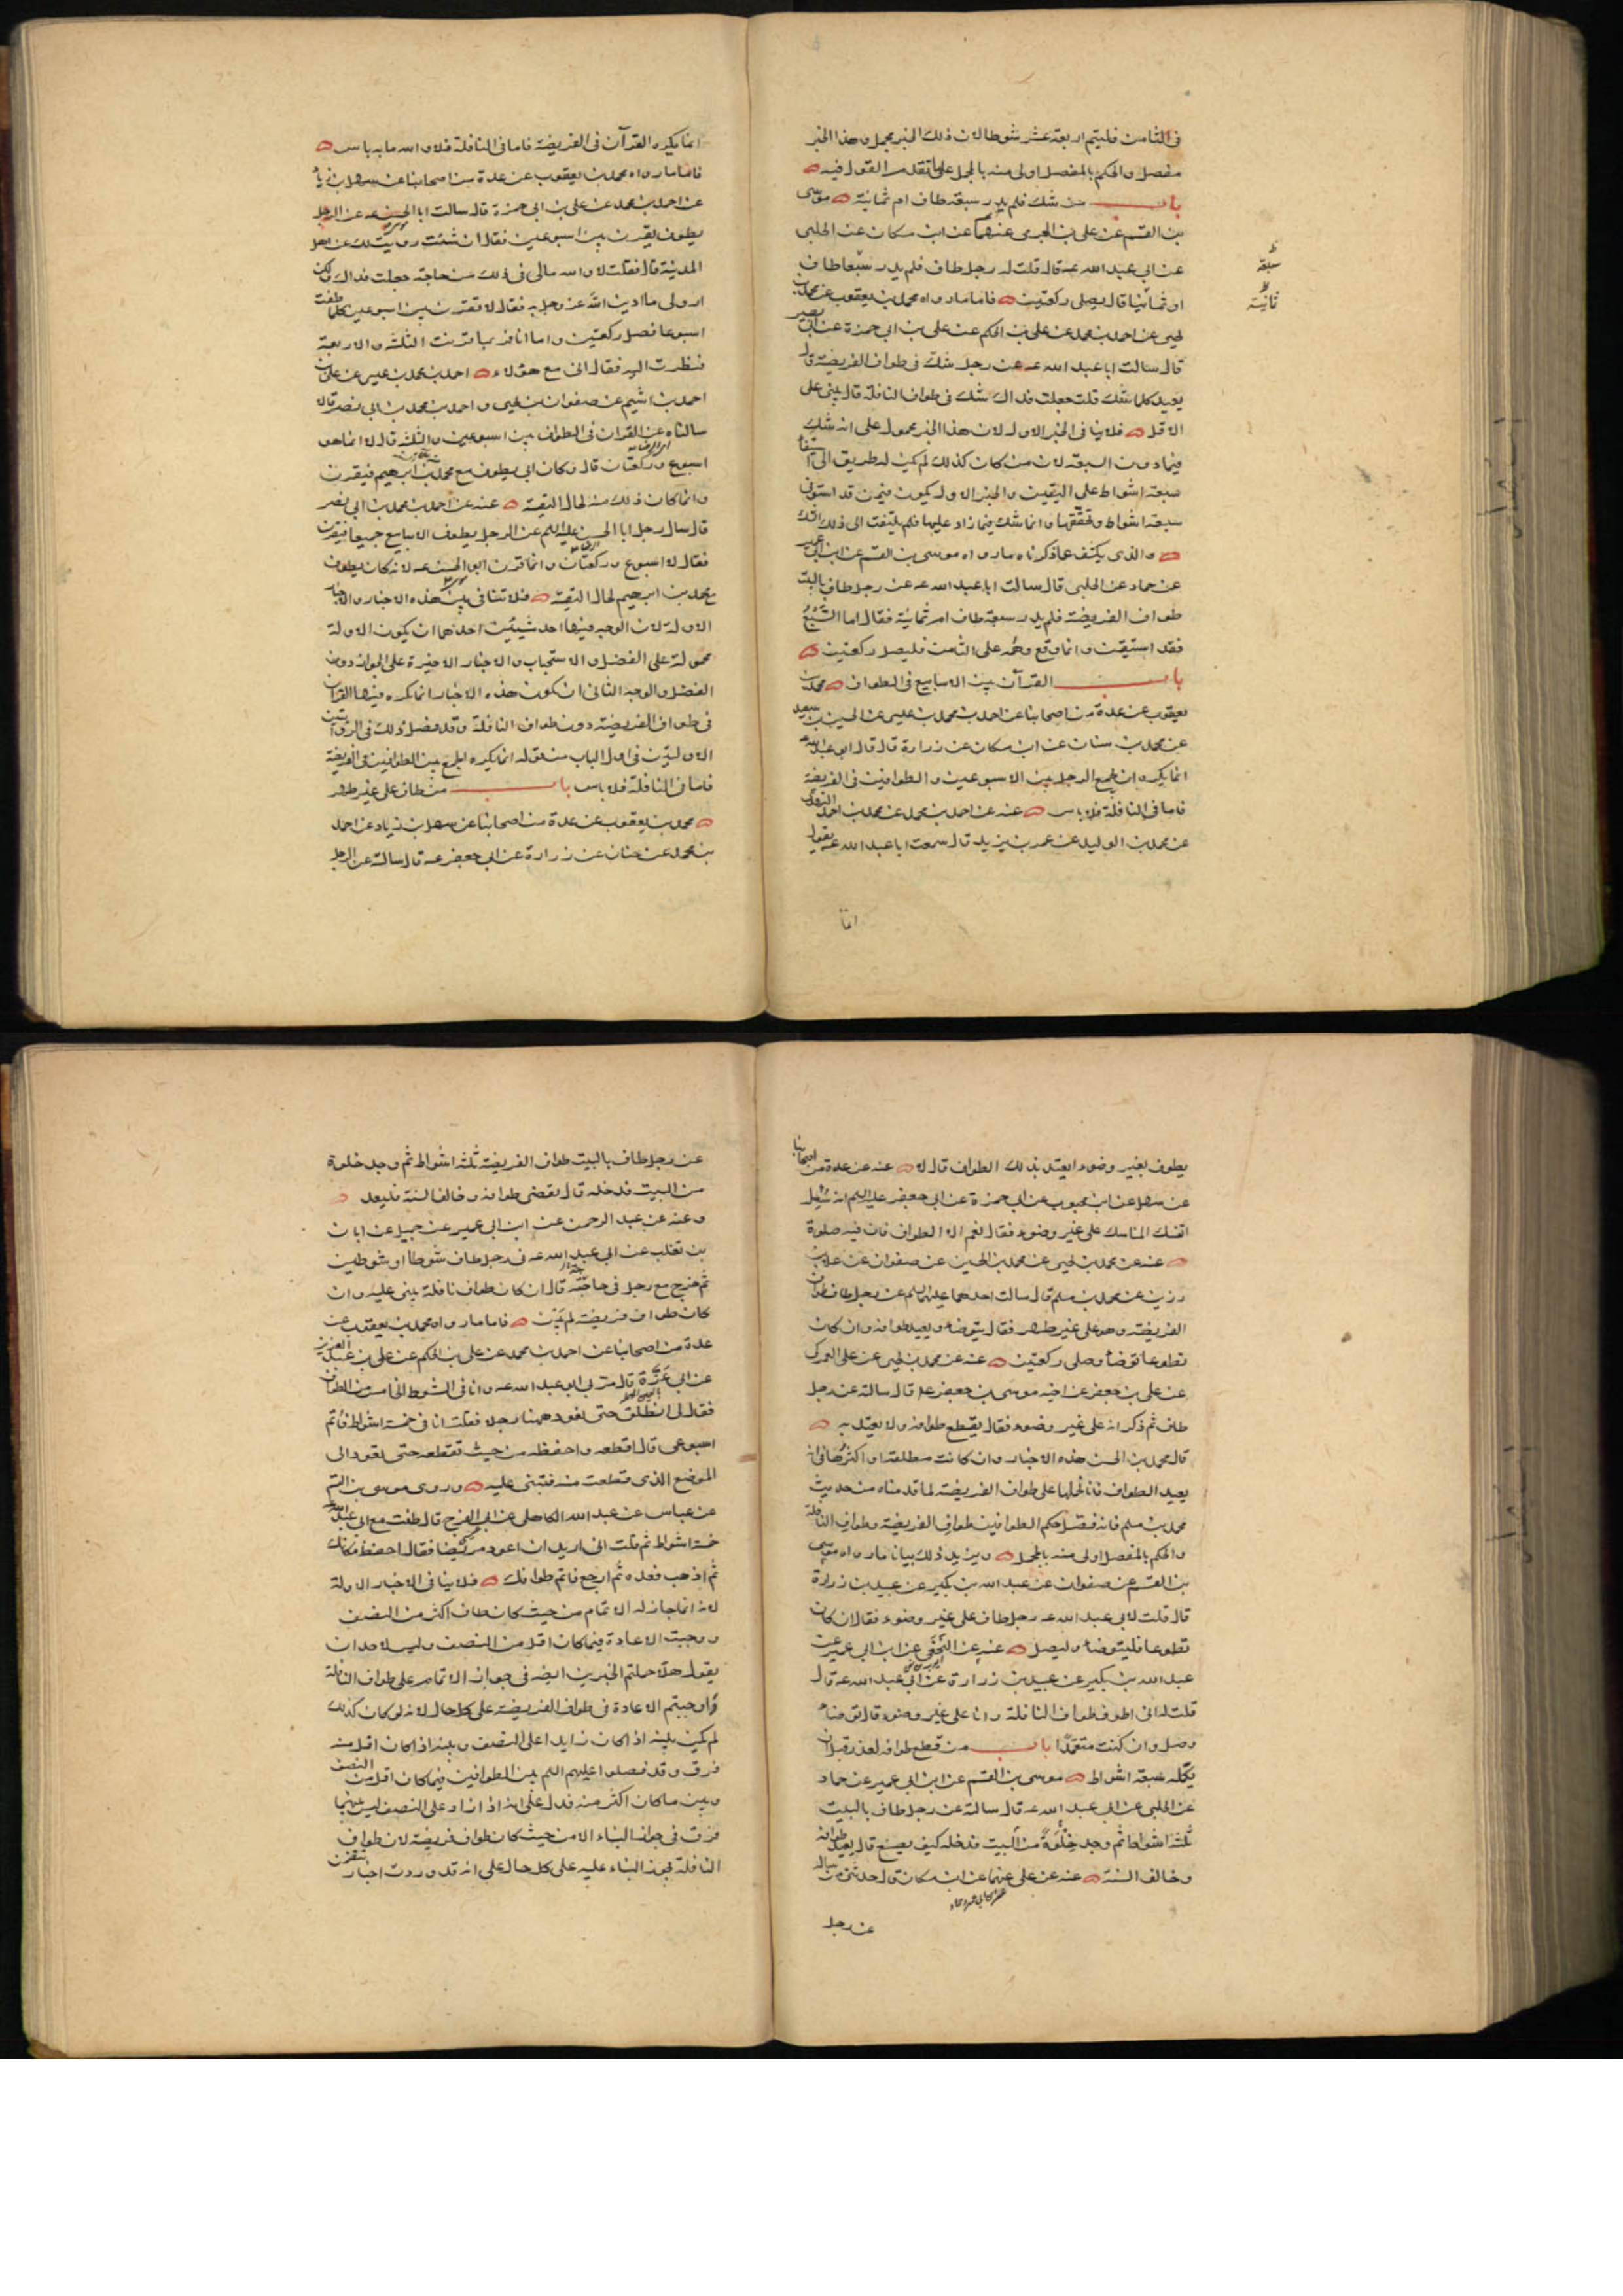 فى الثامن فليتم اربعة عشر شوطا لان ذلك الخبر مجمل وهذا الخبر
مفصل والحكم بالمفصل اولى منه بالمجمل على ما تقدم القول فيه
باب من شك فلم يدر سبعة طاف ام ثمانية موسى
بن القسم عن على بن الجرمى عنهما عن ابن مسكان عن الحلبى
عن ابى عبد الله عه قال قلت له رجل طاف فلم يدر سبعا طاف
او ثمانيا قال يصلى ركعتين فاما ما رواه محمد بن يعقوب عن محمد بن
يحيى عن احمد بن محمد عن على بن الحكم عن على بن ابى حمزة عن ابى بصير
قال سالت ابا عبد الله عه عن رجل شك فى طواف الفريضة قال
يعيد كلما شك قلت جعلت فداك شك فى طواف النافلة قال يبنى على
الاقل فلا ينا فى الخبر الاول لان هذا الخبر محمول على انه شك
فيما دون السبعة لان من كان كذلك لم يكن له طريق الى استيفا
سبعة اشواط على اليقين والخبر الاول يكون فيمن قد استوفى
سبعة اشواط وتحققها وانما شك فيما زاد عليها فلم يلتفت الى ذلك الشك
والذى يكشف عما ذكرناه ما رواه موسى بن القسم عن ابن ابى عمير
عن حماد عن الحلبى قال سالت ابا عبد الله عه عن رجل طاف بالبيت
طواف الفريضة فلم يدر سبعة طاف ام ثمانية فقال اما السبع
فقد استيقن وانما وقع وهمه على الثامن فليصل ركعتين
باب القرآن بين الاسابيع فى الطواف محمد بن
يعقوب عن عدة من اصحابنا عن احمد بن محمد بن عيسى عن الحسين بن سعيد
عن محمد بن سنان عن ابن مسكان عن زرارة قال قال ابو عبد الله عه
انما يكره ان يجمع الرجل بين الاسبوعين والطوافين فى الفريضة
فاما فى النافلة فلا باس عنه عن احمد بن محمد عن محمد بن احمد النهدى
عن محمد بن الوليد عن عمر بن يزيد قال سمعت ابا عبد الله عه يقول
انما
سبعة
ثمانية
انما يكره القرآن فى الفريضة فاما فى النافلة فلا والله ما به باس
فاما ما رواه محمد بن يعقوب عن عدة من اصحابنا عن سهل بن زياد
عن احمد بن محمد عن على بن ابى حمزة قال سالت ابا الحسن عه عن الرجل
يطوف يقرن بين اسبوعين فقال ان شئت رويت لك عن اهل
المدينة قال فقلت لا والله مالى فى ذلك من حاجة جعلت فداك ولكن
ارولى ما ادين الله عز وجل به فقال لا تقرن بين اسبوعين كلما طفت
اسبوعا فصل ركعتين واما انا فربما قرنت الثلثة والاربعة
فنظرت اليه فقال انى مع هؤلاء احمد بن محمد بن عيسى عن على بن
احمد بن اشيم عن صفوان بن يحيى واحمد بن محمد بن ابى نصر قالا
سالناه عن القران فى الطواف بين اسبوعين والثلثة قال لا انما هو
اسبوع وركعتان قال وكان ابى يطوف مع محمد بن ابرهيم فيقرن
وانما كان ذلك منه لحال التقية عنه عن احمد بن محمد بن ابى نصر
قال سال رجل ابا الحسن عليه السلم عن الرجل يطوف الاسابيع جميعا فيقرن
فقال لا اسبوع وركعتان وانما قرن ابو الحسن عه لانه كان يطوف
مع محمد بن ابرهيم لحال التقية فلا تنافى بين هذه الاخبار والاخبار
الاولة لان الوجه فيها احد شيئين احدهما ان يكون الاولة
محمولة على الفضل والاستحباب والاخبار الاخيرة على الجواز دون
الفضل والوجه الثانى ان تكون هذه الاخبار انما كره فيها القران
فى طواف الفريضة دون طواف النافلة وقد فصل ذلك فى الروايتين
الاولتين فى اول الباب من قوله انما يكره الجمع بين الطوافين فى الفريضة
فاما فى النافلة فلا باس باب من طاف على غير طهر
محمد بن يعقوب عن عدة من اصحابنا عن سهل بن زياد عن احمد
بن محمد عن حنان عن زرارة عن ابى جعفر عه قال سالته عن الرجل
يطوف بغير وضوء ايعتد بذلك الطواف قال لا عنه عن عدة من اصحابنا
عن سهل عن ابن محبوب عن ابى حمزة عن ابى جعفر عليه السلم انه سئل
اتنسك المناسك على غير وضوء فقال نعم الا الطواف فان فيه صلوة
عنه عن محمد بن يحيى عن محمد بن الحسين عن صفوان عن علا بن
رزين عن محمد بن مسلم قال سالت احدهما عليهما السلم عن رجل طاف طواف
الفريضة وهو على غير طهر فقال يتوضا ويعيد طوافه وان كان
تطوعا توضا وصلى ركعتين عنه عن محمد بن يحيى عن على العمركى
عن على بن جعفر عن اخيه موسى بن جعفر عه قال سالته عن رجل
طاف ثم ذكر انه على غير وضوء فقال يقطع طوافه ولا يعتد به
قال محمد بن الحسن هذه الاخبار وان كانت مطلقة او اكثرها فى انه
يعيد الطواف فانا نحملها على طواف الفريضة لما قدمناه من حديث
محمد بن مسلم فانه فصل حكم الطوافين طواف الفريضة وطواف النافلة
والحكم بالمفصل اولى منه بالمجمل ويزيد ذلك بيانا ما رواه موسى
بن القسم عن صفوان عن عبد الله بن بكير عن عبيد بن زرارة
قال قلت لابى عبد الله عه رجل طاف على غير وضوء فقال ان كان
تطوعا فليتوضا وليصل عنه عن النخعى عن ابن ابى عمير عن
عبد الله بن بكير عن عبيد بن زرارة عن ابى عبد الله عه قال
قلت له انى اطوف طواف النافلة وانا على غير وضوء قال توضا
وصل وان كنت متعمدا باب من قطع طوافه لعذر قبل ان
يكمله سبعة اشواط موسى بن القسم عن ابن ابى عمير عن حماد
عن الحلبى عن ابى عبد الله عه قال سالته عن رجل طاف بالبيت
ثلثة اشواط ثم وجد خلوة من البيت فدخله كيف يصنع قال يعيد طوافه
وخالف السنة عنه عن على عنهما عن ابن مسكان قال حدثنى من ساله
عن رجل
عن رجل طاف بالبيت طواف الفريضة ثلثة اشواط ثم وجد خلوة
من البيت فدخله قال يقضى طوافه وخالف السنة فليعد
وعنه عن عبد الرحمن عن ابن ابى عمير عن جميل عن ابان
بن تغلب عن ابى عبد الله عه فى رجل طاف شوطا او شوطين
ثم خرج مع رجل فى حاجته قال ان كان طواف نافلة بنى عليه وان
كان طواف فريضة لم يبن فاما ما رواه محمد بن يعقوب عن
عدة من اصحابنا عن احمد بن محمد عن على بن الحكم عن على بن عبد العزيز
عن ابى عزة قال مر بى ابو عبد الله عه وانا فى الشوط الخامس من الطواف
فقال لى انطلق حتى نعود ههنا رجلا فقلت انا فى خمسة اشواط فاتم
اسبوعى قال اقطعه واحفظه من حيث تقطعه حتى تعود الى
الموضع الذى قطعت منه فتبنى عليه وروى موسى بن القسم
عن عباس عن عبد الله الكاهلى عن ابى الفرج قال طفت مع ابى عبد الله عه
خمسة اشواط ثم قلت انى اريد ان اعود مريضا فقال احفظ مكانك
ثم اذهب فعده ثم ارجع فاتم طوافك فلا ينا فى الاخبار الاولة
لانه انما جاز له الاتمام من حيث كان طاف اكثر من النصف
ووجبت الاعادة فيما كان اقل من النصف وليس لاحد ان
يقول هلا حملتم الخبرين ايضه فى جواز الاتمام على طواف النافلة
واوجبتم الاعادة فى طواف الفريضة على كل حال لانه لو كان كذلك
لم يكن بينه اذا كان زايدا على النصف وبينه اذا كان اقل منه
فرق وقد فصلوا عليهم السلم بين الطوافين فيما كان اقل من النصف
وبين ما كان اكثر منه فدل على انه اذا زاد على النصف ليس بينهما
فرق فى جواز البناء الا من حيث كان طواف فريضة لان طواف
النافلة يجوز البناء عليه على كل حال على انه قد وردت اخبار